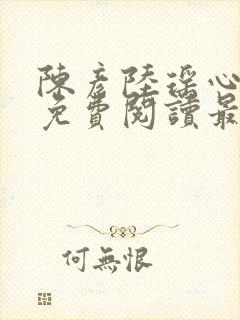 陳彥陸瑶心
免費閱讀最
何無恨